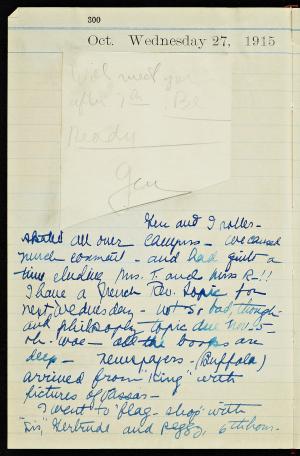 300
Oct. Wednesday 27, 1915
Will meet you
after 7th. Be
ready
Gen
Gen and I roller-
skated all over campus - we caused
much comment - and had quite a
time eluding Mrs. T. and Miss R-!!
I have a French Rev. topic for
next Wednesday - not so bad, though
and philosophy topic due Nov. 5 -
oh - woe - all the books are
deep - newspapers - (Buffalo)
arrived from "King" with
pictures of Vassar -
I went to "flag-shop" with
"Sis", Gertrude and Peggy, 6th hour.